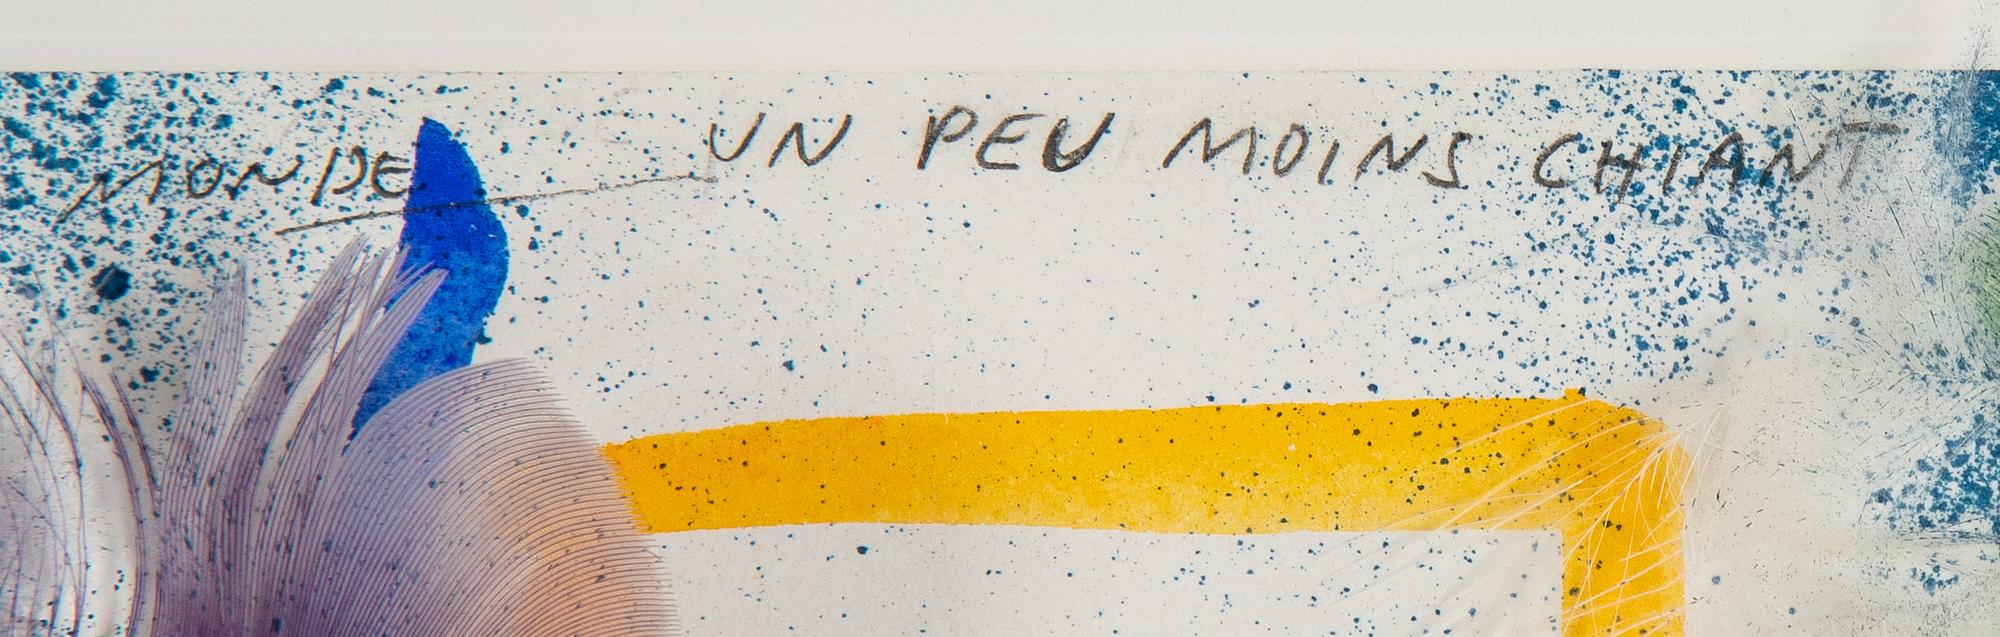 MONDE UN PEU MOINS CHIANT